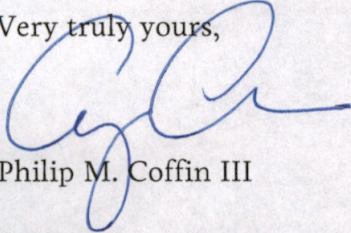 Very truly yours,
Philip M. Coffin III